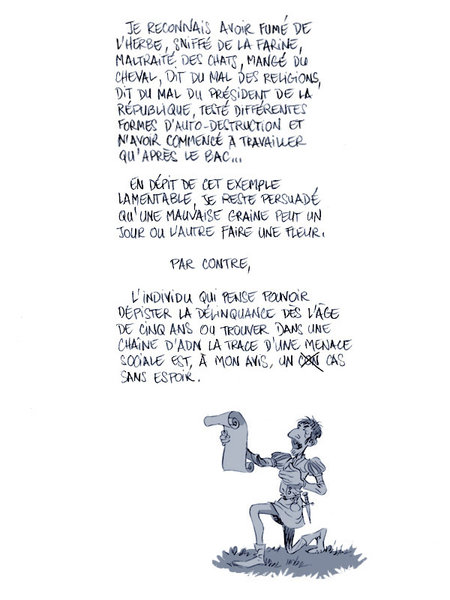 JE RECONNAIS AVOIR FUMÉ DE
L'HERBE, SNIFFÉ DE LA FARINE,
MALTRAITÉ DES CHATS, MANGÉ DU
CHEVAL, DIT DU MAL DES RELIGIONS,
DIT DU MAL DU PRÉSIDENT DE LA
RÉPUBLIQUE, TESTÉ DIFFÉRENTES
FORMES D'AUTO-DESTRUCTION ET
N'AVOIR COMMENCÉ À TRAVAILLER
QU'APRÈS LE BAC...
EN DÉPIT DE CET EXEMPLE
LAMENTABLE, JE RESTE PERSUADÉ
QU'UNE MAUVAISE GRAINE PEUT UN
JOUR OU L'AUTRE FAIRE UNE FLEUR.
PAR CONTRE,
L'INDIVIDU QUI PENSE POUVOIR
DÉPISTER LA DÉLINQUANCE DÈS L'ÂGE
DE CINQ ANS OU TROUVER DANS UNE
CHAÎNE D'ADN LA TRACE D'UNE MENACE
SOCIALE EST, À MON AVIS, UN CON CAS
SANS ESPOIR.